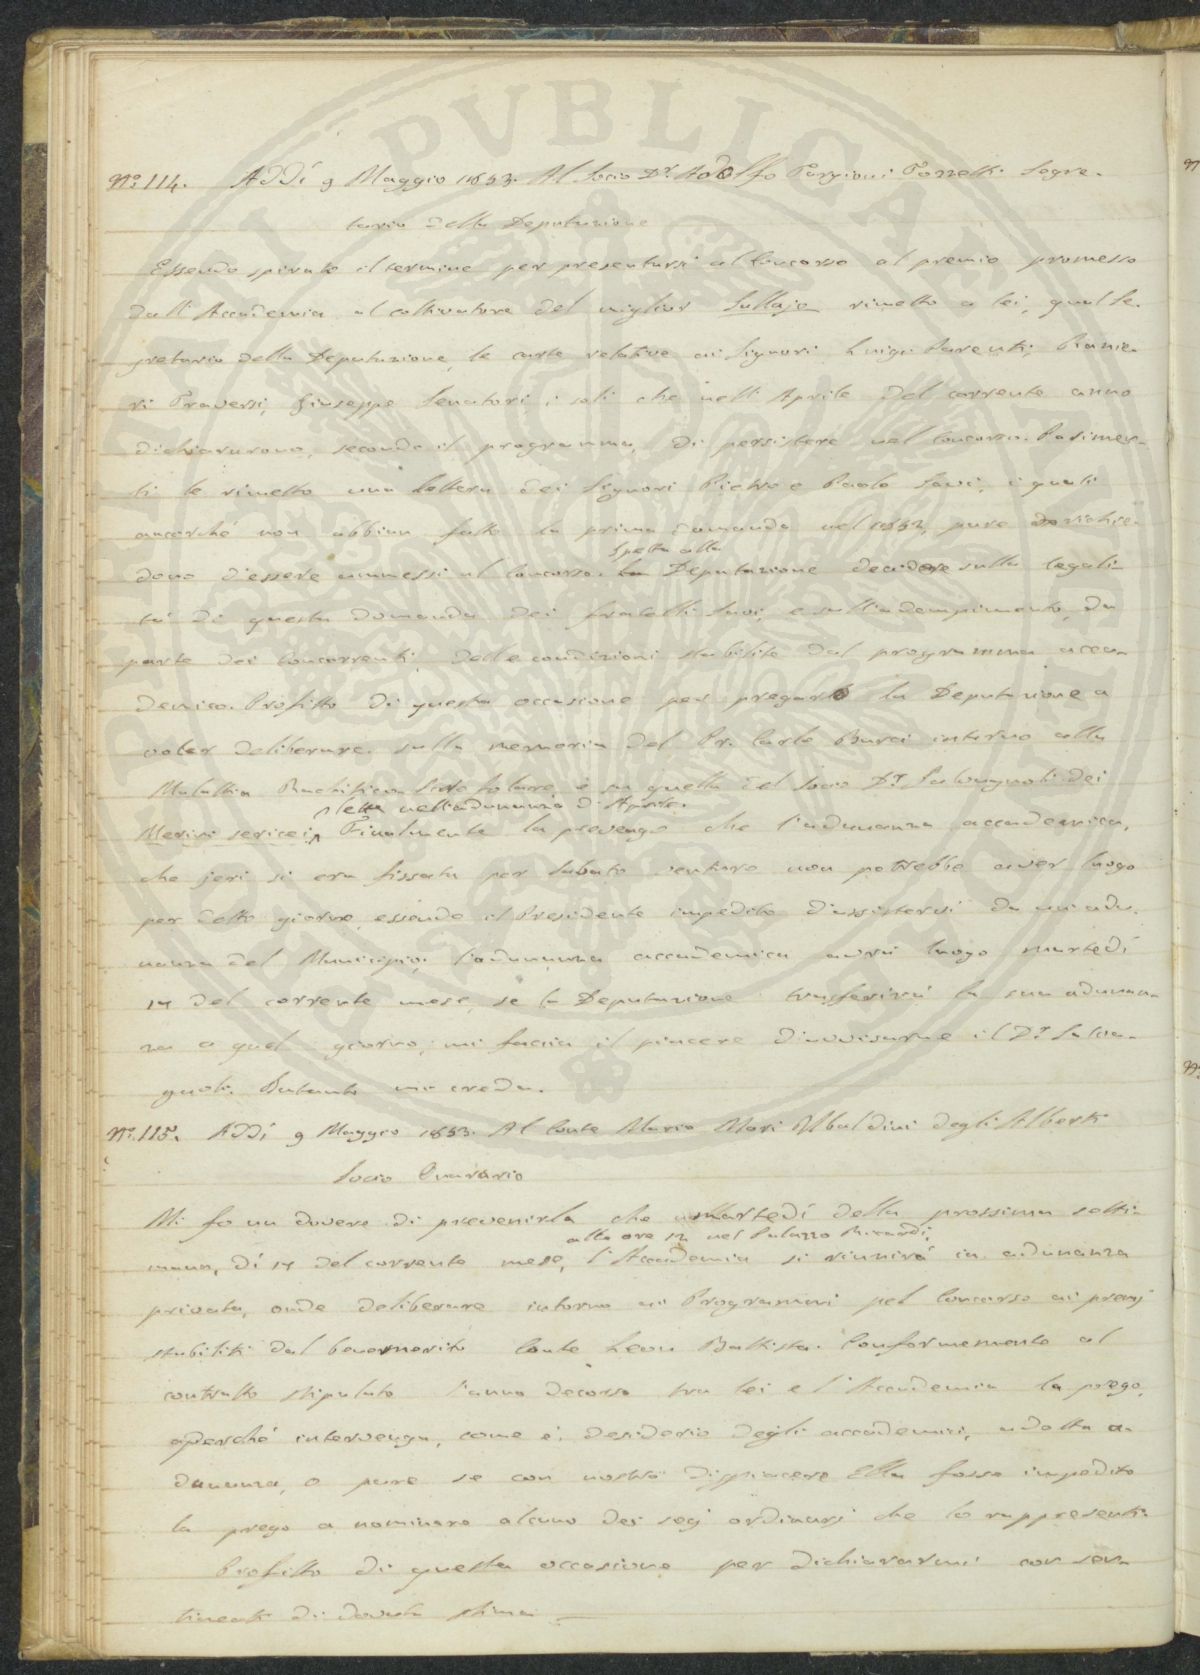 N.º 114. Addí 9 Maggio 1853. Al Socio D.r Adolfo Targioni Tozzetti Segre-
tario della Deputazione
Essendo spirato il termine per presentarsi al Concorso al premio promesso
dall'Accademia al coltivatore del miglior Sullajo rimetto a lei, qual Se-
gretario della Deputazione, le carte relative ai Signori Luigi Parenti, Ranie-
ri Traversi, Giuseppe Senatori, i soli che nell'Aprile del corrente anno
dichiararono, secondo il programma, di persistere nel Concorso. Parimen-
ti le rimetto una lettera dei Signori Pietro e Paolo Savi, i quali
ancorché non abbian fatto la prima domanda nel 1852, pure richie-
dono d'essere ammessi al Concorso. Spetta alla Deputazione decidere sulla legali-
tá di questa domanda dei fratelli Savi, e sull'adempimento, da
parte dei Concorrenti, delle condizioni stabilite dal programma acca-
demico. Profitto di questa occasione per pregare la Deputazione a
voler deliberare sulla memoria del Pr. Carlo Burci intorno alla
Malattia, e su quella del Socio D.r Salvagnoli dei
Merini sericei, letta nell'adunanza d'Aprile.
Finalmente la prevengo che l'adunanza accademica,
che jeri si era fissata per Sabato venturo non potrebbe aver luogo
per detto giorno, essendo il Presidente impedito d'assistervi da un'adu-
nanza del Municipio; l'adunanza accademica avrá luogo martedí
17 del corrente mese, se la Deputazione trasferirá la sua adunan-
za a quel giorno, mi faccia il piacere d'avvisarne il D.r Salva-
gnoli. Intanto mi creda.
N.º 115. Addí 9 Maggio 1853. Al Conte Mario Mori Ubaldini degli Alberti
Socio Onorario
Mi fo un dovere di prevenirla che martedí della prossima setti-
alle ore 12 nel Palazzo Riccardi,
mana, dí 17 del corrente mese, l'Accademia si riunirá in adunanza
privata, onde deliberare intorno ai Programmi pel Concorso ai premj
stabiliti dal benemerito Conte Leon Battista. Conformemente al
contratto stipulato l'anno decorso tra lei e l'Accademia la prego,
perché intervenga, come é desiderio degli accademici, a detta a-
dunanza, o pure se con nostro dispiacere Ella fosse impedito
la prego a nominare alcuno dei socj ordinarj che lo rappresenti.
Profitto di questa occasione per dichiararmi con sen-
timenti di dovuta stima